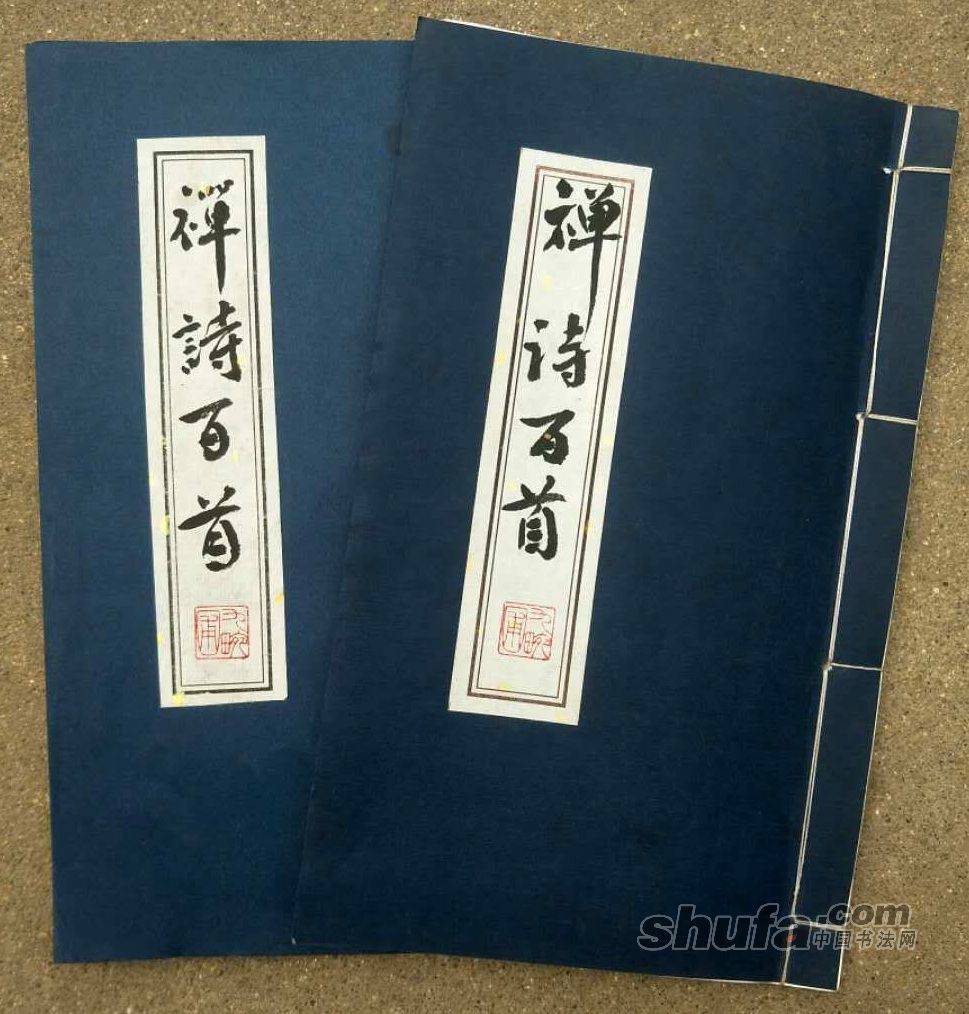 禪詩百首
禅诗百首
shufa.com
中国书法网